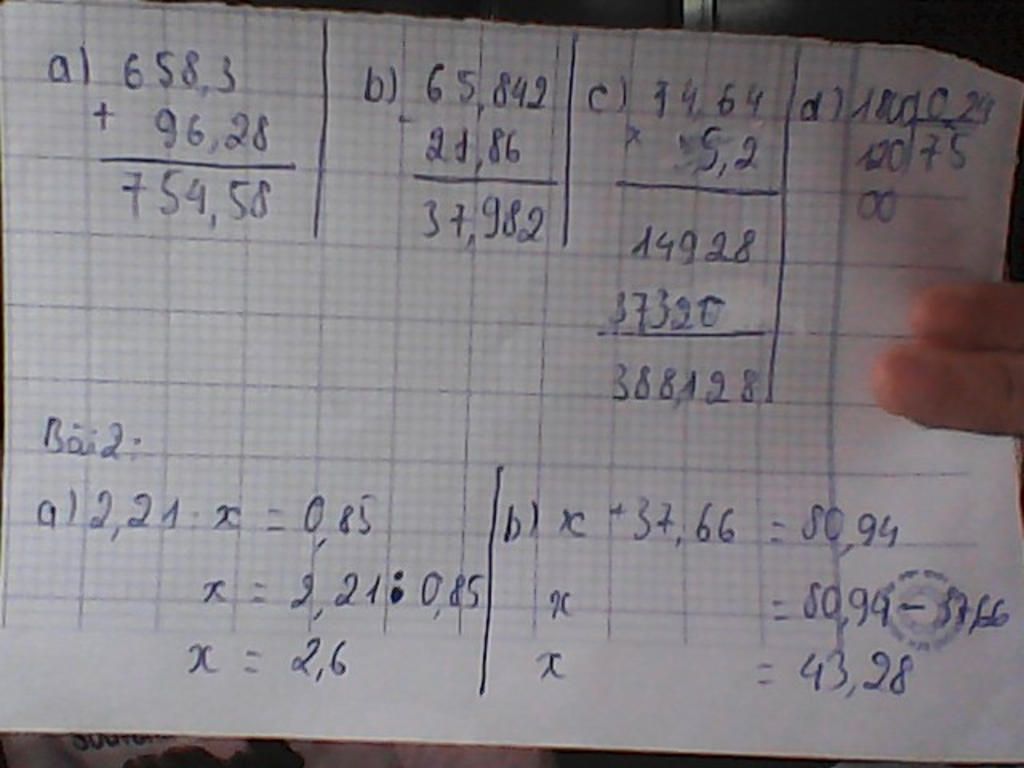 a) 658,3
+ 96,28
754,58
b) 65,842
- 21,86
37,982
c) 74,64
x 5,2
14928
37320
388,128
d)
120 75
00
Bài 2:
a) 2,21 : x = 0,85
x = 2,21 : 0,85
x = 2,6
b) x + 37,66 = 80,94
x = 80,94 - 37,66
x = 43,28